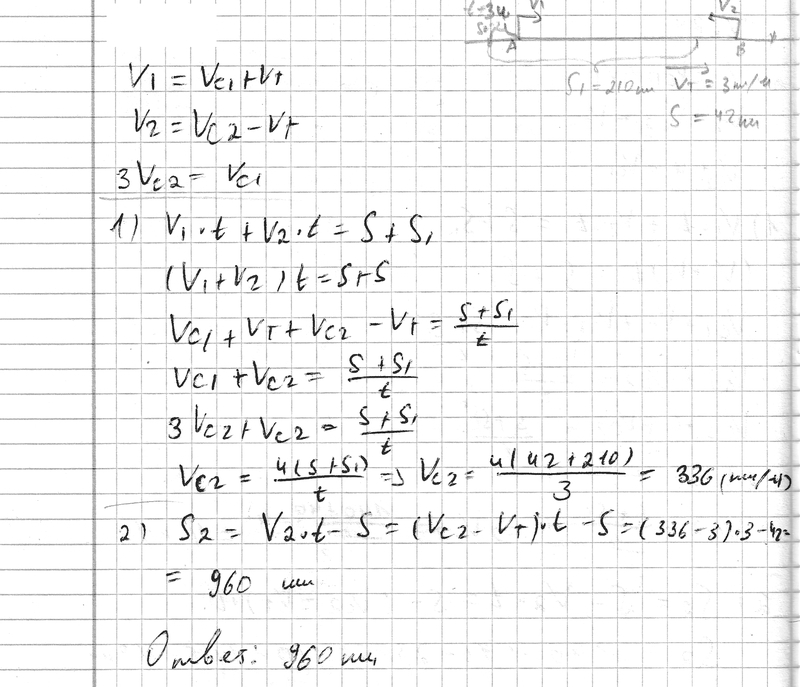 t=3ч V₁ V₂
A B
S₁ = 210 км V_T = 3 км/ч
S = 42 км
V₁ = V_C1 + V_T
V₂ = V_C2 − V_T
3V_C2 = V_C1
1) V₁·t + V₂·t = S + S₁
(V₁ + V₂)t = S + S
V_C1 + V_T + V_C2 − V_T = (S + S₁)/t
V_C1 + V_C2 = (S + S₁)/t
3V_C2 + V_C2 = (S + S₁)/t
V_C2 = 4(S + S₁)/t => V_C2 = 4(42 + 210)/3 = 336 (км/ч)
2) S₂ = V₂·t − S = (V_C2 − V_T)·t − S = (336 − 3)·3 − 42 =
= 960 км
Ответ: 960 км